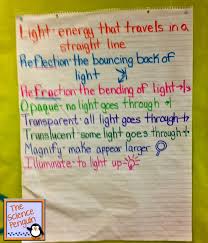 Light- energy that travels in a
straight line
Reflection- the bouncing back of
light
Refraction- the bending of light
Opaque- no light goes through
Transparent- all light goes through
Translucent- some light goes through
Magnify- make appear larger
Illuminate- to light up
The
Science
Penguin